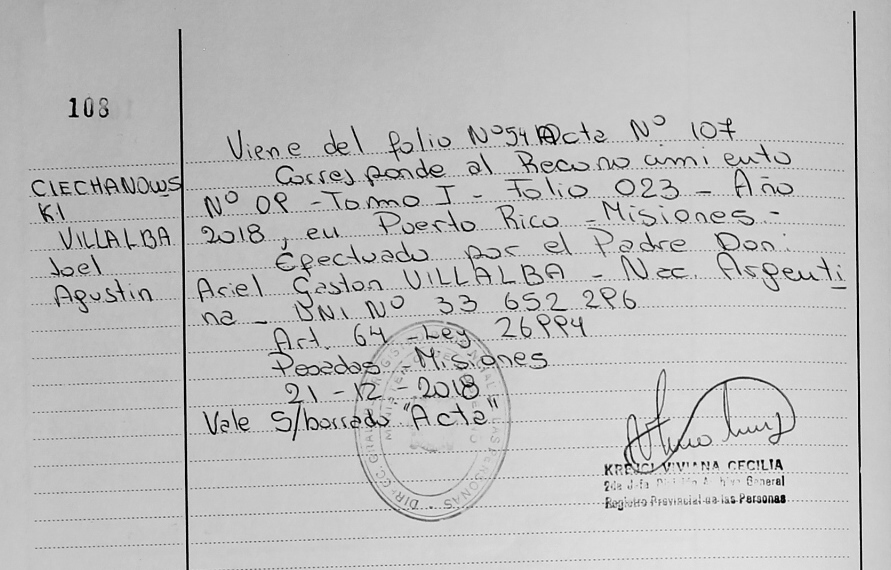 108
CIECHANOWS
KI
VILLALBA
Joel
Agustin
Viene del folio Nº 54 Acta Nº 107
Corresponde al Reconocimiento
Nº 09 - Tomo I - Folio 023 - Año
2018, en Puerto Rico - Misiones -
Efectuado por el Padre Don:
Ariel Gaston VILLALBA - Nac. Argenti
na - DNI Nº 33 652 296
Art. 64 - Ley 26994
Posadas - Misiones
21 - 12 - 2018
Vale S/borrado "Acta"
KREJCI VIVIANA CECILIA
General
Registro Provincial de las Personas
LAS PERSONAS